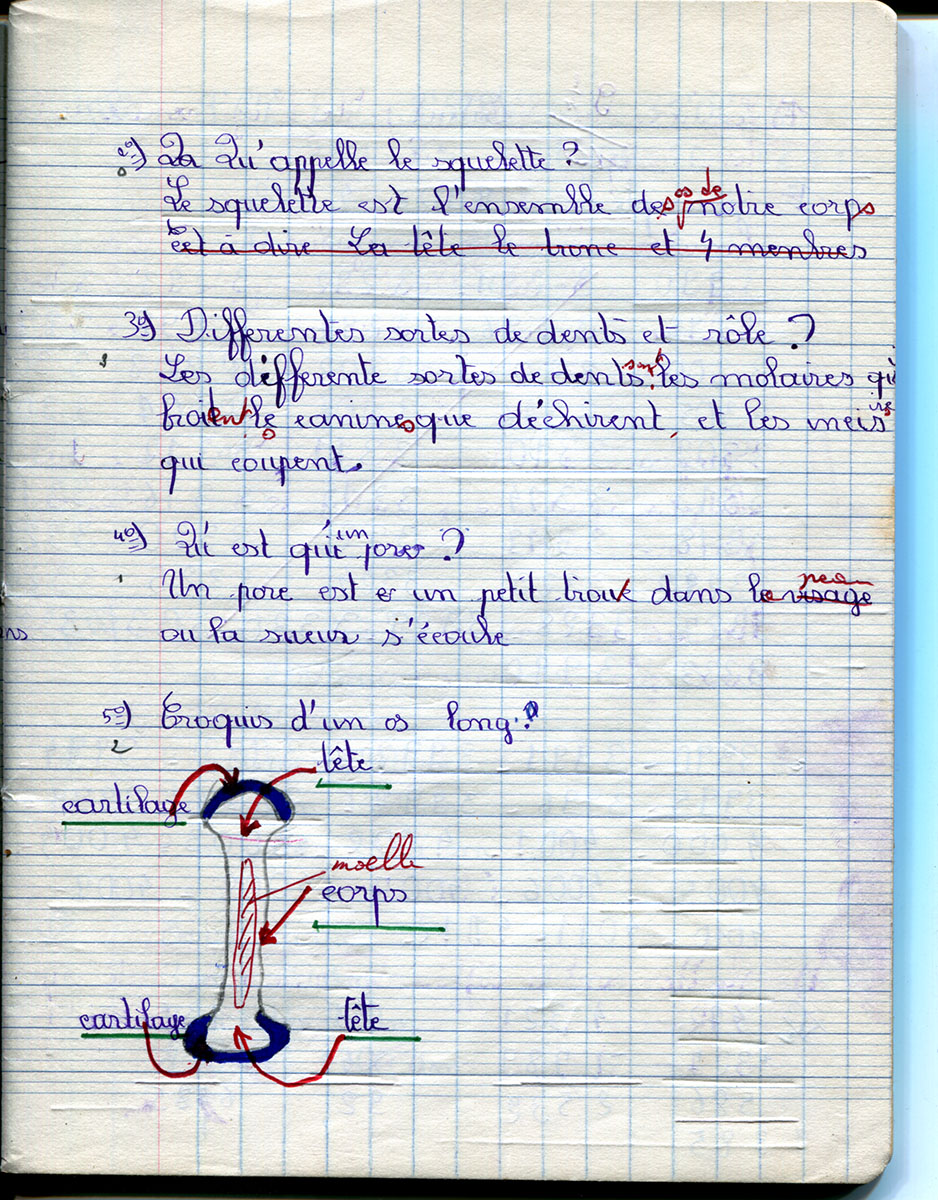 2º) Qu'appelle le squelette ?
0
os de
Le squelette est l'ensemble des notre corps
cet à dire La tête le tronc et 4 menbres
3º) Differentes sortes de dents et rôle ?
Les différente sortes de dents sont les molaires qui
broient les canines que déchirent, et les incisives
qui coupent.
4º) Qu'est qu'un pores ?
1
peau
Un pore est un petit trou dans le visage
ou la sueur s'écoule
5º) Croquis d'un os long ?
2
tête
cartilage
moelle
corps
cartilage
tête